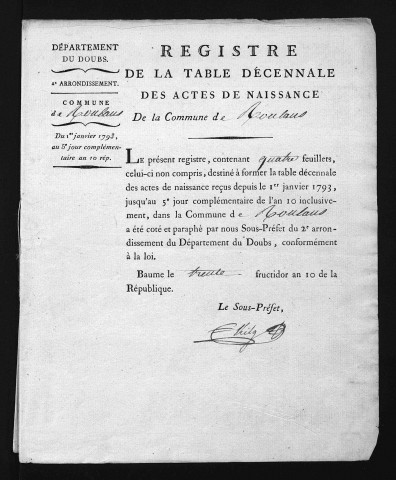 DÉPARTEMENT
DU DOUBS.
2e ARRONDISSEMENT.
COMMUNE
de Roulans
Du 1er janvier 1793,
au 5e jour complémen-
taire an 10 rép.
REGISTRE
DE LA TABLE DÉCENNALE
DES ACTES DE NAISSANCE
De la Commune de Roulans
LE présent registre, contenant quatre feuillets,
celui-ci non compris, destiné à former la table décennale
des actes de naissance reçus depuis le 1er janvier 1793,
jusqu'au 5e jour complémentaire de l'an 10 inclusive-
ment, dans la Commune de Roulans
a été coté et paraphé par nous Sous-Préfet du 2e arron-
dissement du Département du Doubs, conformément
à la loi.
Baume le trente fructidor an 10 de la
République.
Le Sous-Préfet,